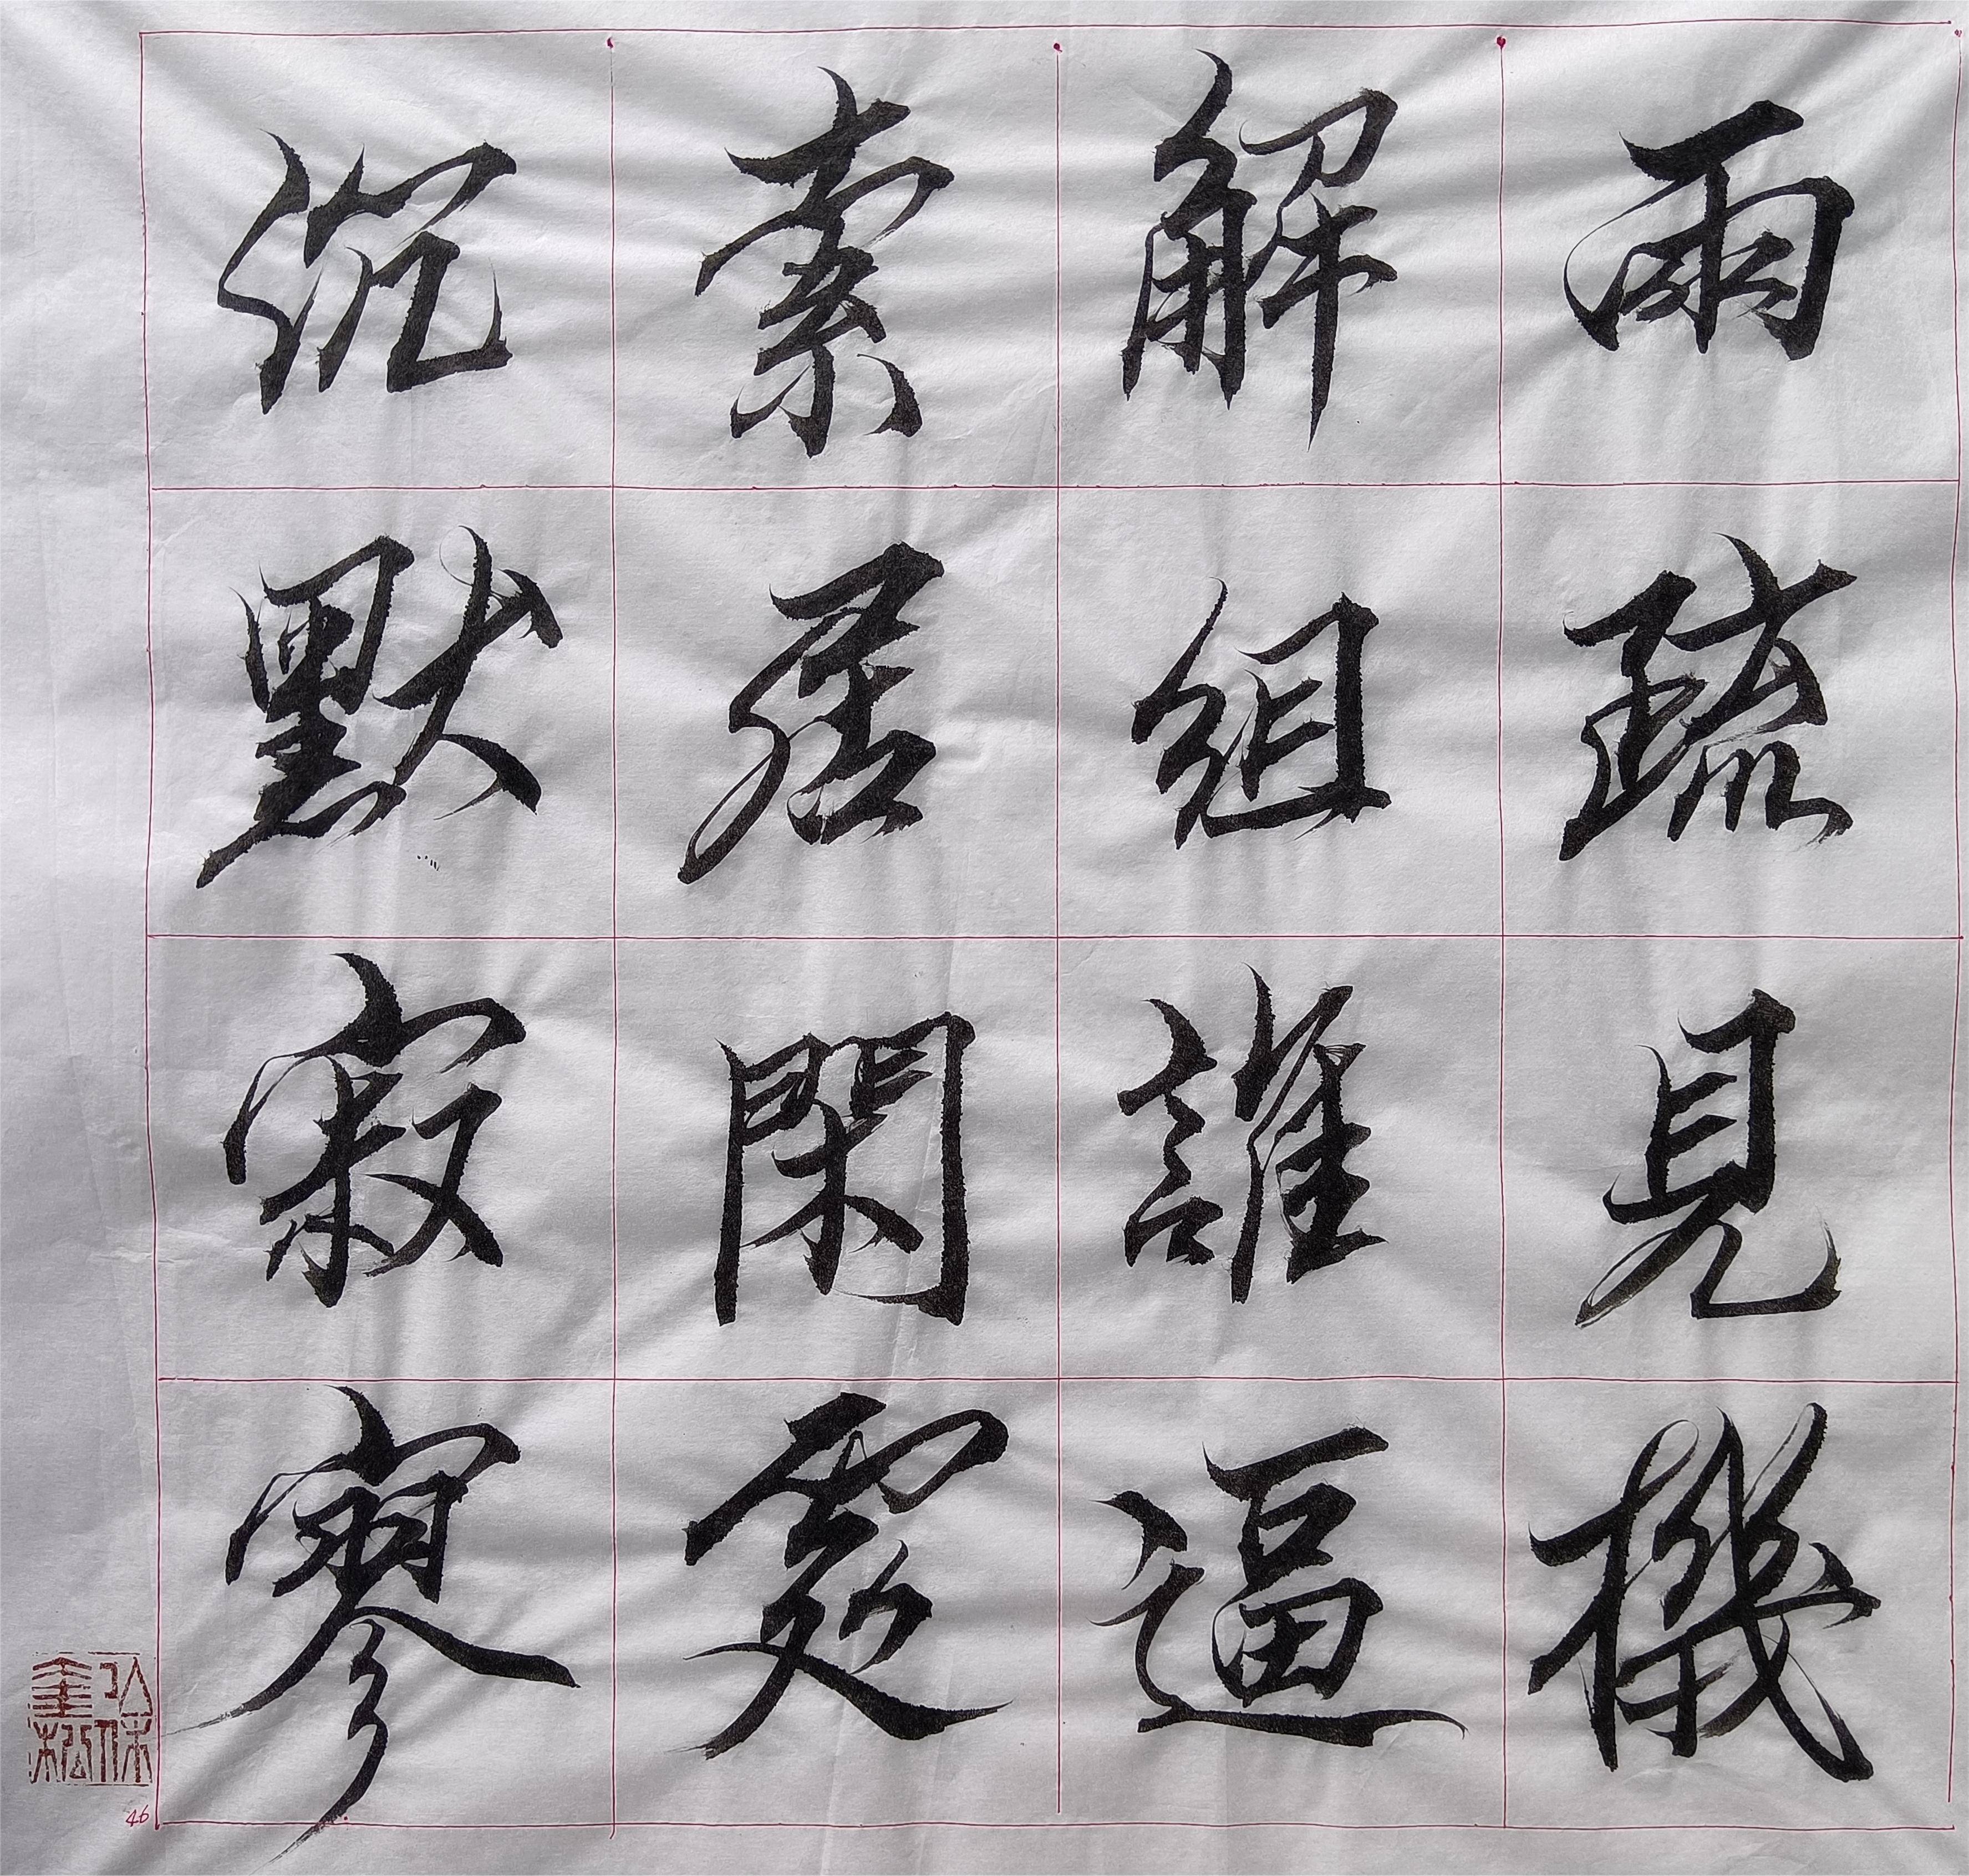 兩疏見機
解組誰逼
索居閑處
沉默寂寥
46